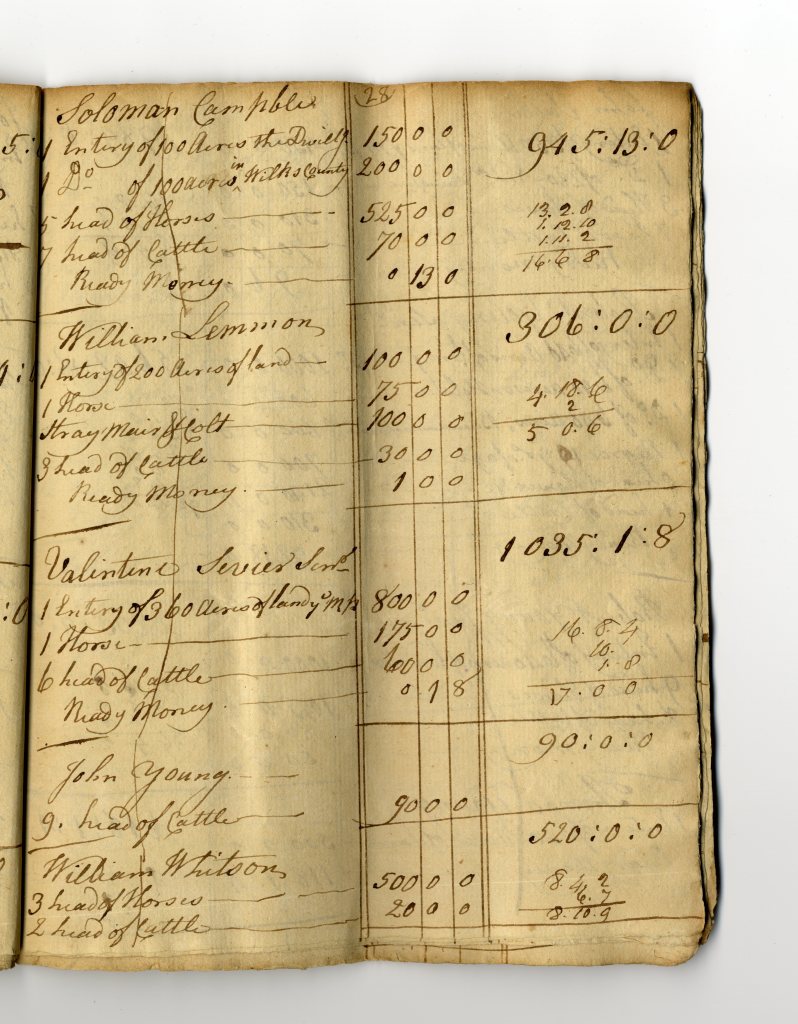 28
Soloman Campble
1 Entery of 100 Acres the Dwillg 150 0 0 945:13:0
1 Do of 100 acres in Wilks County 200 0 0
5 head of Horses 525 0 0 13.2.8
7 head of Cattle 70 0 0 1.12.10
Ready Money 0 13 0 1.11.2
16.6 8
William Lemmon 306:0:0
1 Entery of 200 Acres of land 100 0 0
1 Horse 75 0 0 4.18.6
Stray Mair & Colt 100 0 0 2
5 0.6
3 head of Cattle 30 0 0
Ready Money 1 0 0
1035:1:8
Valintine Sevier Senr
1 Entery of 360 Acres of land 800 0 0
1 Horse 175 0 0 16.8.4
10.
6 head of Cattle 60 0 0 1.8
Ready Money 0 1 8 17.0 0
90:0:0
John Young
9. head of Cattle 90 0 0
520:0:0
William Whitson
3 head of Horses 500 0 0 8.4.2
6.7
2 head of Cattle 20 0 0 8.10.9